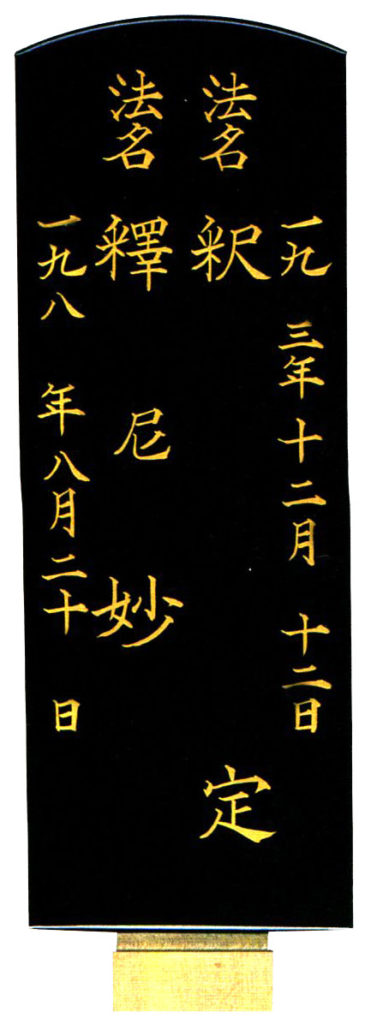 一九 三年十二月 十二日
法名 釈 定
法名 釋 尼 妙
一九八 年八月二十 日